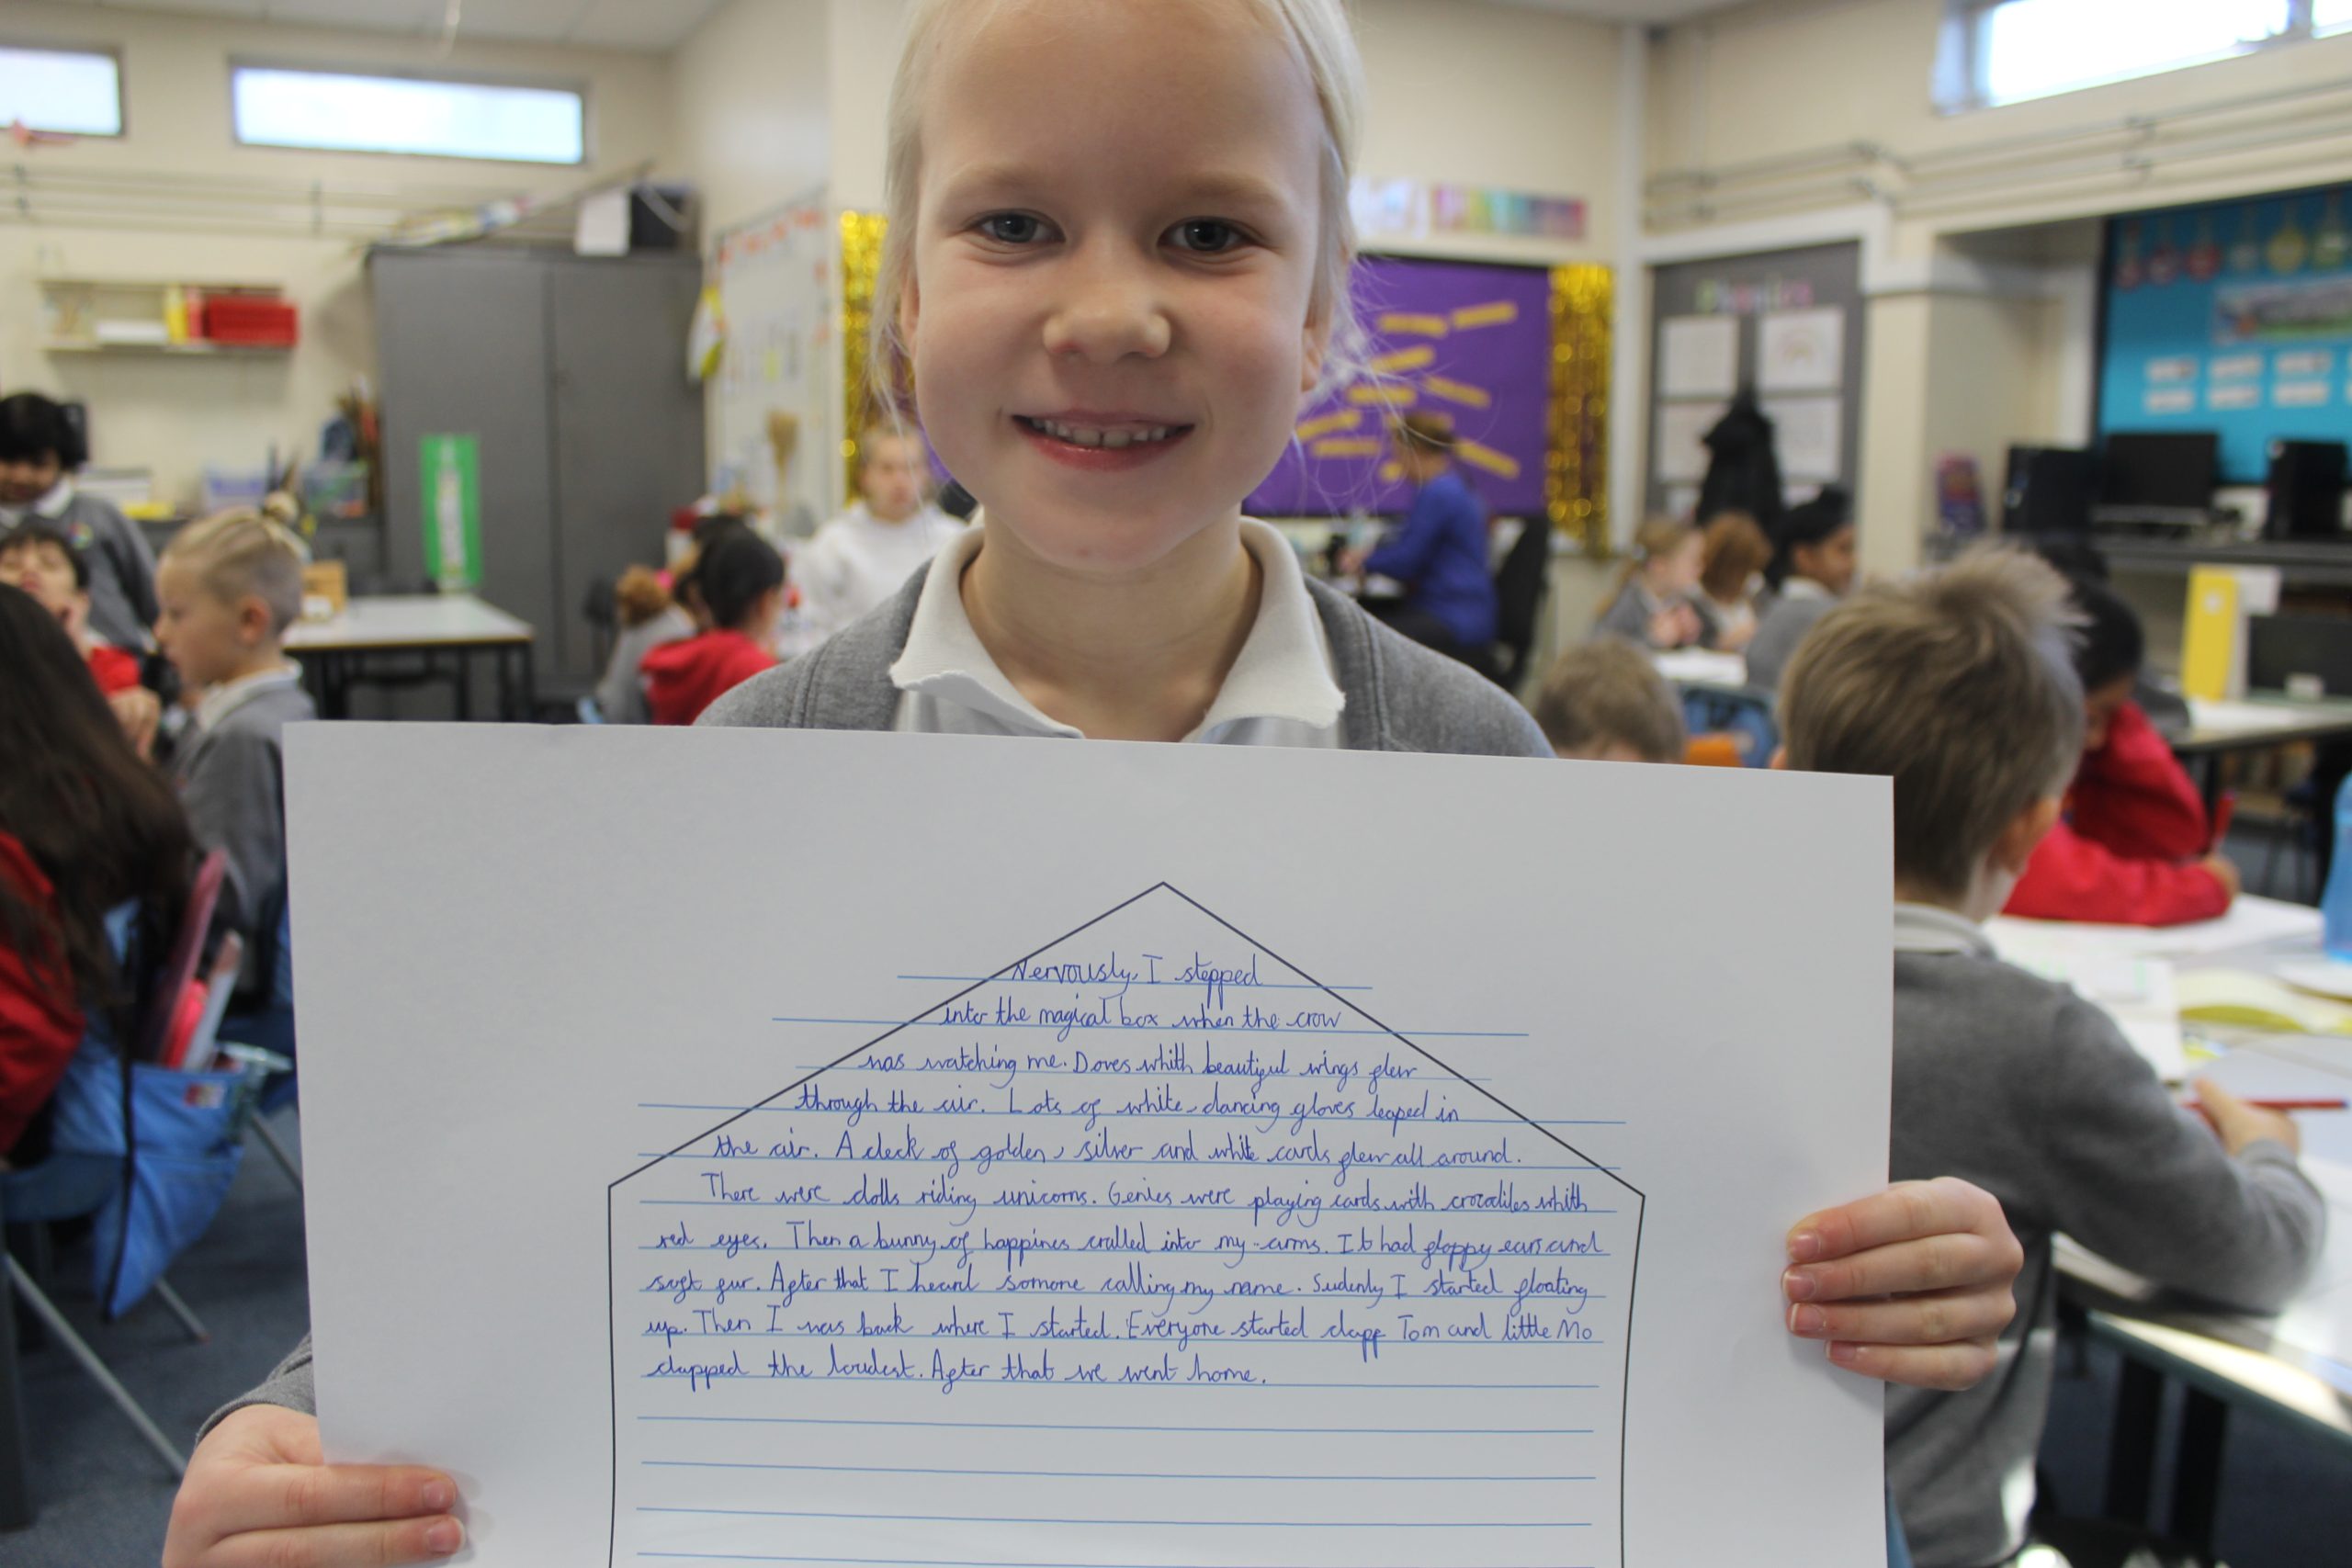 Nervously, I stepped
into the magical box when the crow
was watching me. Doves whith beautiful wings flew
through the air. Lots of white dancing gloves leaped in
the air. A deck of golden, silver and white cards flew all around.
There were dolls riding unicorns. Genies were playing cards with crocodiles whith
red eyes. Then a bunny of happines cralled into my arms. It had floppy ears and
soft fur. After that I heard somone calling my name. Sudenly I started floating
up. Then I was back where I started. Everyone started clapp Tom and little Mo
clapped the loudest. After that we went home.